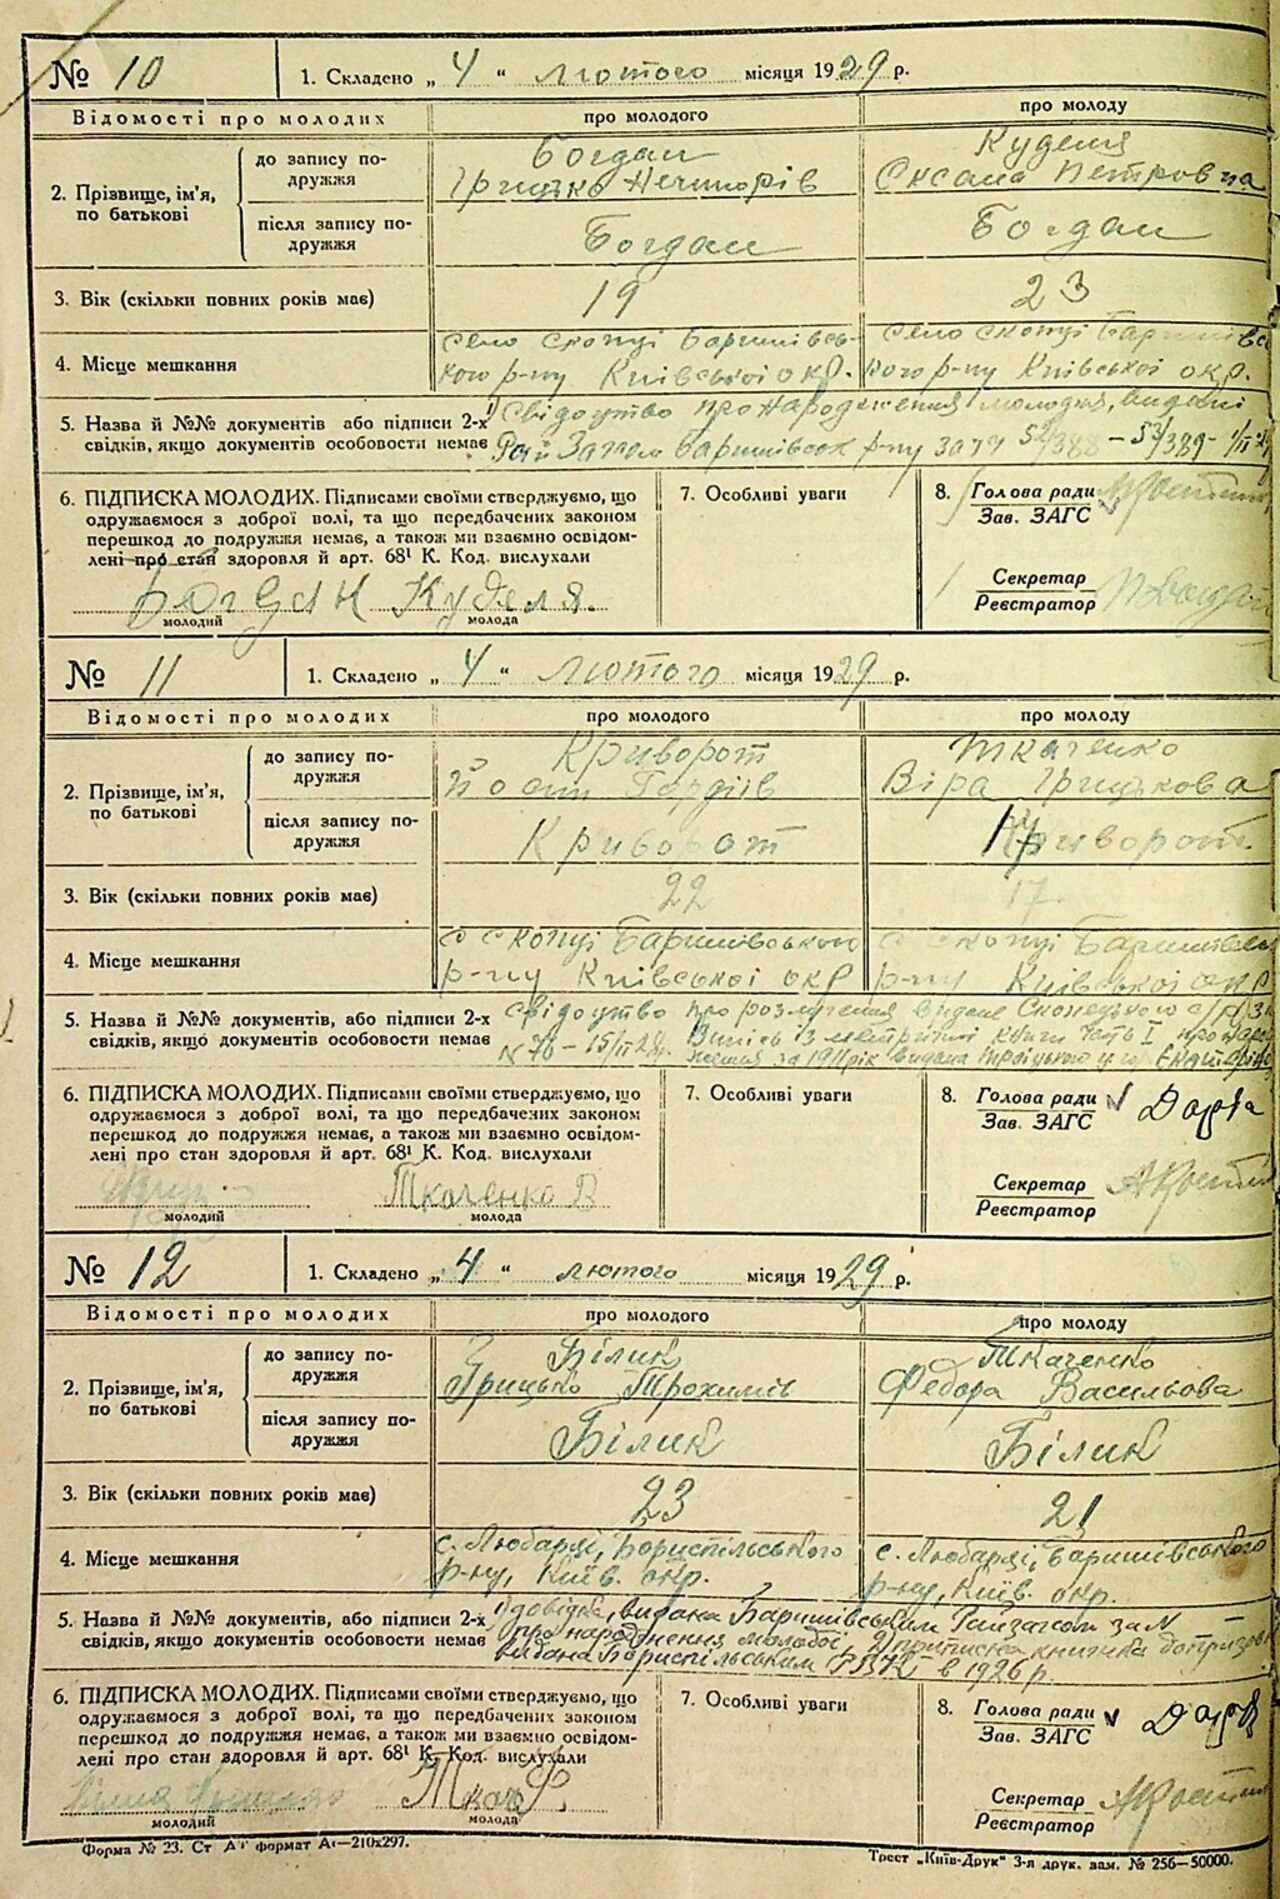 № 10 1. Складено „ 4 “ лютого місяця 1929 р.
Відомості про молодих про молодого про молоду
2. Прізвище, ім'я, по батькові
до запису подружжя
Богдан
Грицько Нечипорів
Куделя
Оксана Петровна
після запису подружжя
Богдан
Богдан
3. Вік (скільки повних років має) 19 23
4. Місце мешкання
село Скопці Баришівсь-
кого р-ну Київської окр.
село Скопці Баришівсь
кого р-ну Київської окр.
5. Назва й №№ документів або підписи 2-х
свідків, якщо документів особовости немає
1) Свідоцтво про народження молодих, видані
Рай Загсом Баришівськ р-ну за №№ 52/388 – 53/389 –
6. ПІДПИСКА МОЛОДИХ. Підписами своїми стверджуємо, що
одружаємося з доброї волі, та що передбачених законом
перешкод до подружжя немає, а також ми взаємно освідом-
лені про стан здоровля й арт. 68¹ К. Код. вислухали
Богдан Куделя.
молодий молода
7. Особливі уваги
8. Голова ради
Зав. ЗАГС
Секретар
Реєстратор
№ 11 1. Складено „ 4 “ лютого місяця 1929 р.
Відомості про молодих про молодого про молоду
2. Прізвище, ім'я, по батькові
до запису подружжя
Криворот
Йосип Гордіїв
Ткаченко
Віра Грицькова
після запису подружжя
Криворот
Криворот
3. Вік (скільки повних років має) 22 17
4. Місце мешкання
с Скопці Баришівського
р-ну Київської окр
с Скопці Баришівськ
р-ну Київської окр
5. Назва й №№ документів, або підписи 2-х
свідків, якщо документів особовости немає
свідоцтво про розлучення видане Скопецькою с/р
№ 76 – 15/II 28р. Випись із метричної книги часть I про народ
ження за 1911 рік видана Троїцькою
6. ПІДПИСКА МОЛОДИХ. Підписами своїми стверджуємо, що
одружаємося з доброї волі, та що передбачених законом
перешкод до подружжя немає, а також ми взаємно освідом-
лені про стан здоровля й арт. 68¹ К. Код. вислухали
Ткаченко В
молодий молода
7. Особливі уваги
8. Голова ради
Зав. ЗАГС
Секретар
Реєстратор
№ 12 1. Складено „ 4 “ лютого місяця 1929 р.
Відомості про молодих про молодого про молоду
2. Прізвище, ім'я, по батькові
до запису подружжя
Білик
Грицько Трохимів
Ткаченко
Федора Васильова
після запису подружжя
Білик
Білик
3. Вік (скільки повних років має) 23 21
4. Місце мешкання
с. Любарці, Бориспільського
р-ну, Київ. окр.
с. Любарці, Баришівського
р-ну, Київ. окр.
5. Назва й №№ документів, або підписи 2-х
свідків, якщо документів особовости немає
1) довідка, видана Баришівським Райзагсом за № –
про народження молодої, 2) приписна книжка допризов
видана Бориспільським РВК – в 1926 р.
6. ПІДПИСКА МОЛОДИХ. Підписами своїми стверджуємо, що
одружаємося з доброї волі, та що передбачених законом
перешкод до подружжя немає, а також ми взаємно освідом-
лені про стан здоровля й арт. 68¹ К. Код. вислухали
молодий молода
7. Особливі уваги
8. Голова ради
Зав. ЗАГС
Секретар
Реєстратор
Форма № 23. Ст формат А₄—210х297.
Трест „Київ-Друк“ 3-я друк. зам. № 256—50000.